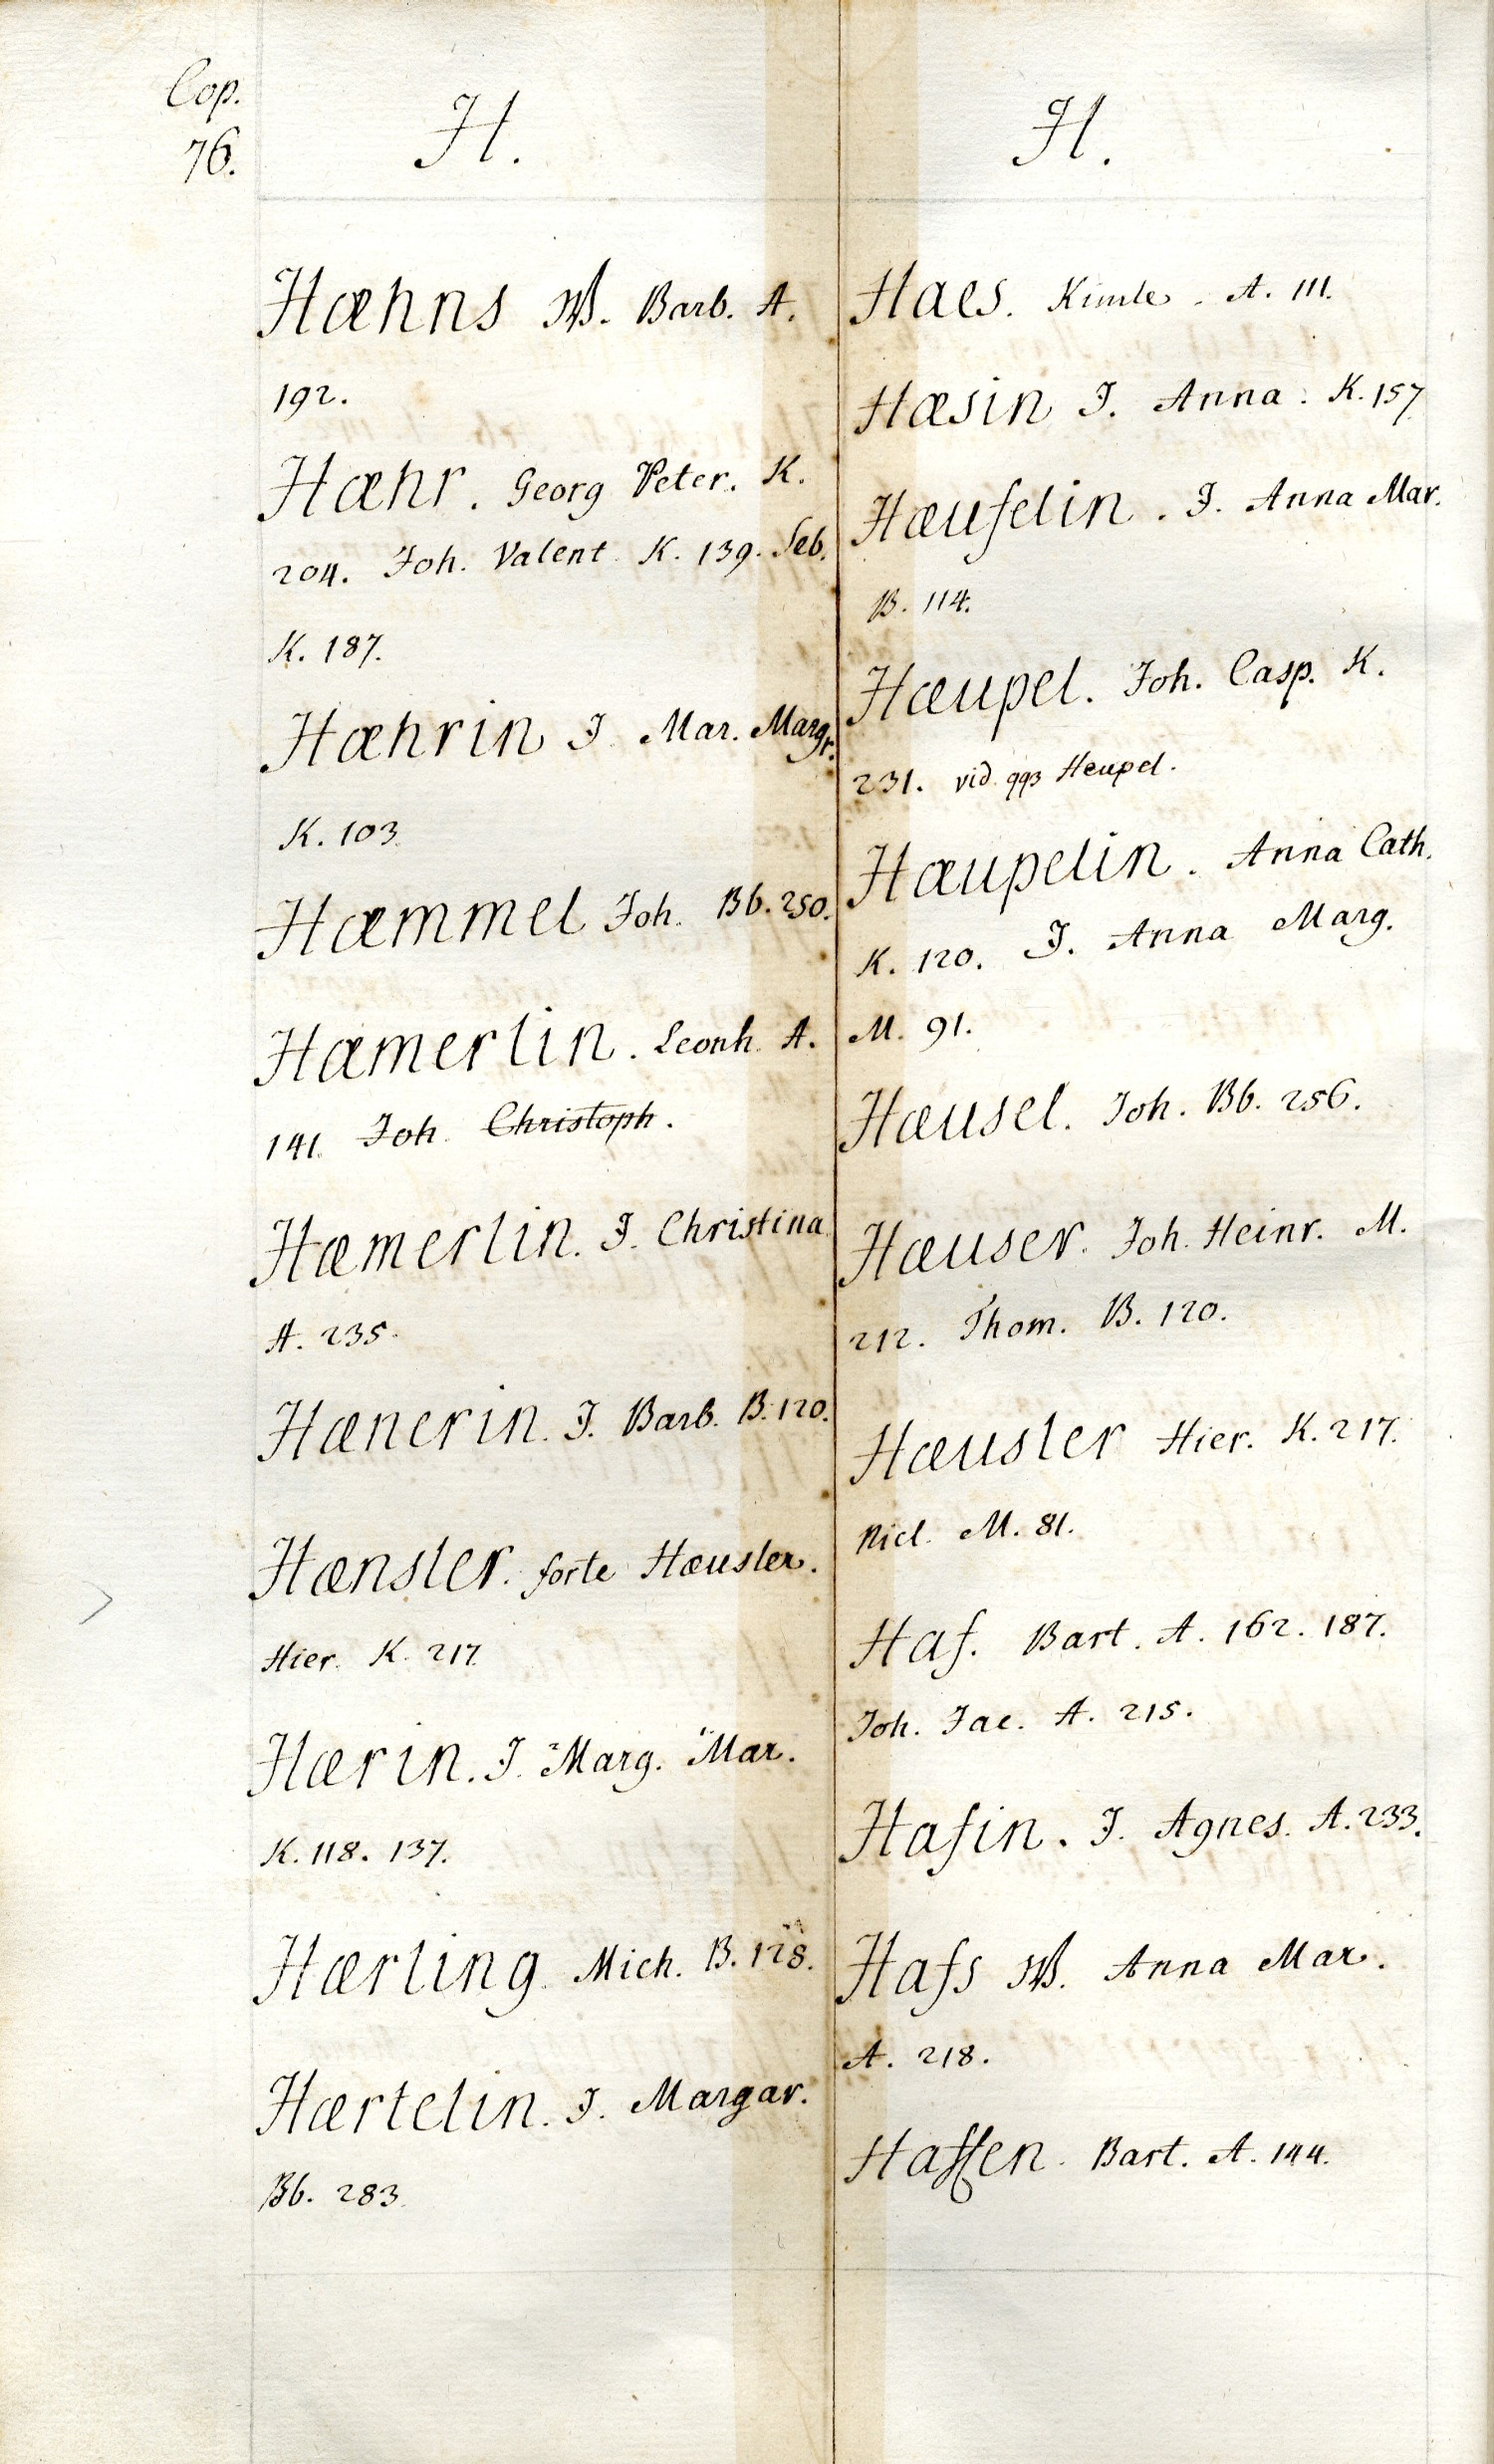 Cop.
76.
H.
Hæhns W. Barb. A.
192.
Hæhr. Georg Peter. K.
204. Joh. Valent. K. 139. Seb.
K. 187.
Hæhrin J. Mar. Margr.
K. 103.
Hæmmel Joh. Bb. 250.
Hæmerlin. Leonh. A.
141. Joh. Christoph.
Hæmerlin. J. Christina
A. 235.
Hænerin. J. Barb. B. 120.
Hænsler. forte Hæusler.
Hier. K. 217.
Hærin. J. Marg. Mar.
K. 118. 137.
Hærling. Mich. B. 128.
Hærtelin. J. Margar.
Bb. 283.
H.
Haes. A. 111.
Hæsin J. Anna. K. 157
Hæuſelin. J. Anna Mar.
B. 114.
Hæupel. Joh. Casp. K.
231. vid. Heupel.
Hæupelin. Anna Cath.
K. 120. J. Anna Marg.
M. 91.
Hæusel. Joh. Bb. 256.
Hæuser. Joh. Heinr. M.
212. Thom. B. 120.
Hæusler Hier. K. 217.
Nicl. M. 81.
Haf. Bart. A. 162. 187.
Joh. Jac. A. 215.
Hafin. J. Agnes. A. 233.
Haſs W. Anna Mar.
A. 218.
Haffen. Bart. A. 144.